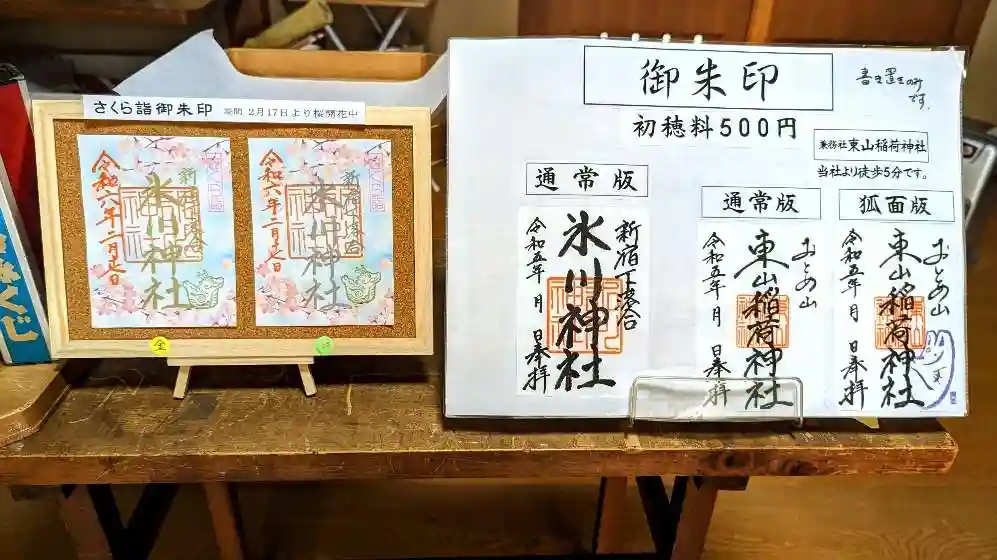 さくら詣御朱印 期間 2月17日より桜開花中
令和六年二月十七日
新宿下落合
氷川神社
令和六年二月十七日
新宿下落合
氷川神社
金
御朱印
書き置きのみ
です。
初穂料500円
兼務社 東山稲荷神社
当社より徒歩5分です。
通常版
新宿下落合
氷川神社
令和五年 月 日奉拝
通常版
おとめ山
東山稲荷神社
令和五年 月 日奉拝
狐面版
おとめ山
東山稲荷神社
令和五年 月 日奉拝